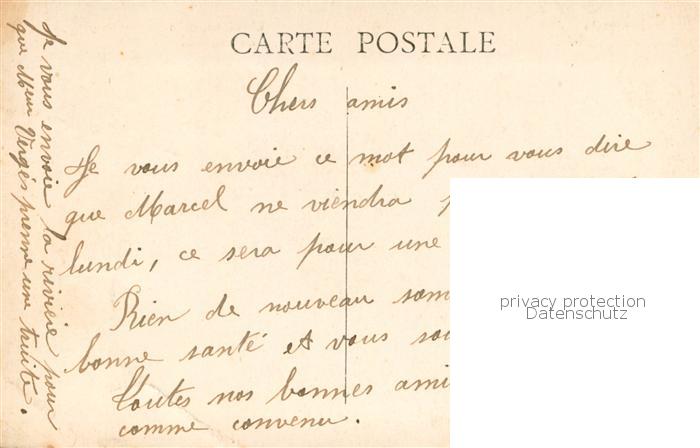 CARTE POSTALE
Chers amis
Je vous envoie ce mot pour vous dire
que Marcel ne viendra
lundi, ce sera pour une
Rien de nouveau
bonne santé et vous
Toutes nos bonnes
comme convenu.
Je vous envoie la rivière pour
que Mr Vergés prenne une truite.
privacy protection
Datenschutz